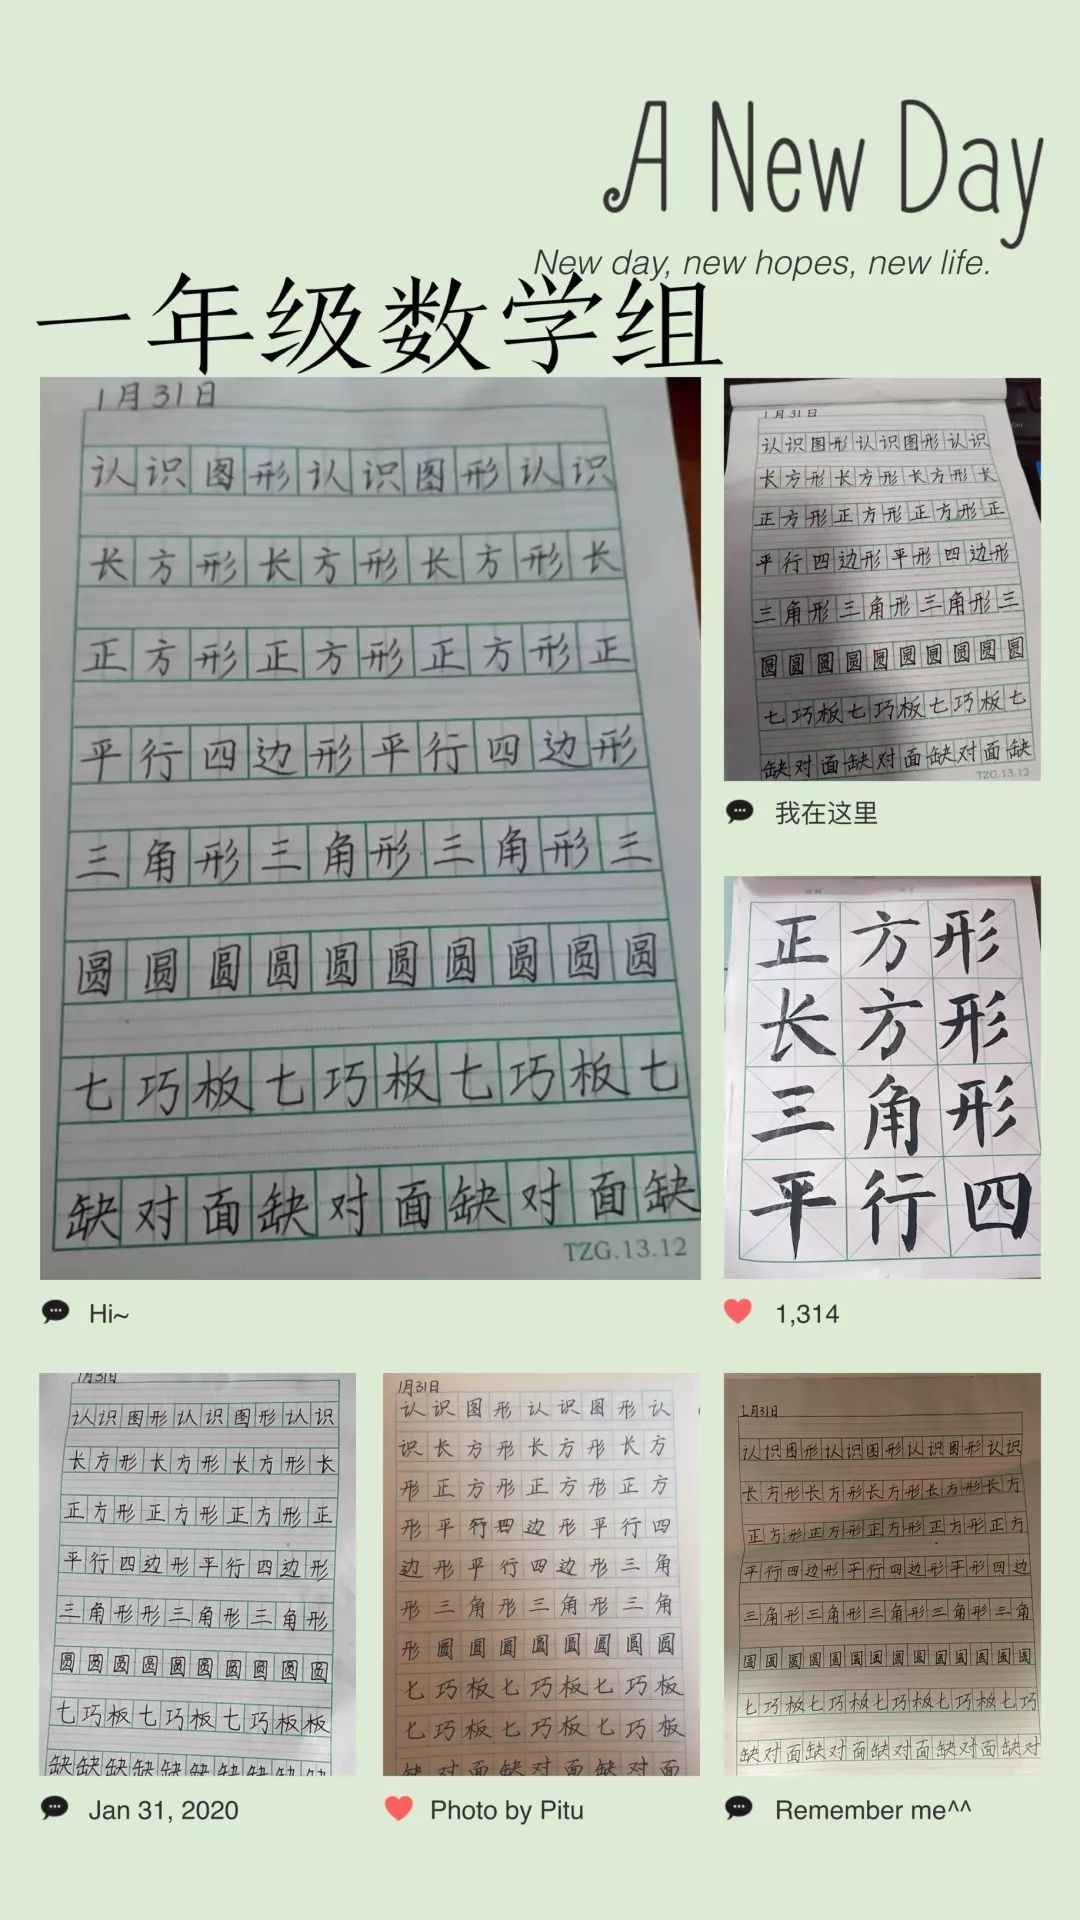 A New Day
New day, new hopes, new life.
一年级数学组
1月31日
认识图形认识图形认识
长方形长方形长方形长
正方形正方形正方形正
平行四边形平行四边形
三角形三角形三角形三
圆圆圆圆圆圆圆圆圆圆
七巧板七巧板七巧板七
缺对面缺对面缺对面缺
TZG.13.12
Hi~
1月31日
认识图形认识图形认识
长方形长方形长方形长
正方形正方形正方形正
平行四边形平形四边形
三角形三角形三角形三
圆圆圆圆圆圆圆圆圆圆
七巧板七巧板七巧板七
缺对面缺对面缺对面缺
TZG.13.12
我在这里
正方形
长方形
三角形
平行四
1,314
1月31日
认识图形认识图形认识
长方形长方形长方形长
正方形正方形正方形正
平行四边形平行四边形
三角形形三角形三角形
圆圆圆圆圆圆圆圆圆圆
七巧板七巧板七巧板板
缺缺缺缺缺缺缺缺缺缺
Jan 31, 2020
1月31日
认识图形认识图形认
识长方形长方形长方
形正方形正方形正方
形平行四边形平行四
边形平行四边形三角
形三角形三角形三角
形圆圆圆圆圆圆圆圆
七巧板七巧板七巧板
七巧板七巧板七巧板
缺对面缺对面缺对面
Photo by Pitu
1月31日
认识图形认识图形认识图形认识
长方形长方形长方形长方形长方
正方形正方形正方形正方形正方
平行四边形平行四边形平形四边
三角形三角形三角形三角形三角
圆圆圆圆圆圆圆圆圆圆圆圆圆圆
七巧板七巧板七巧板七巧板七巧
缺对面缺对面缺对面缺对面缺对
Remember me^^